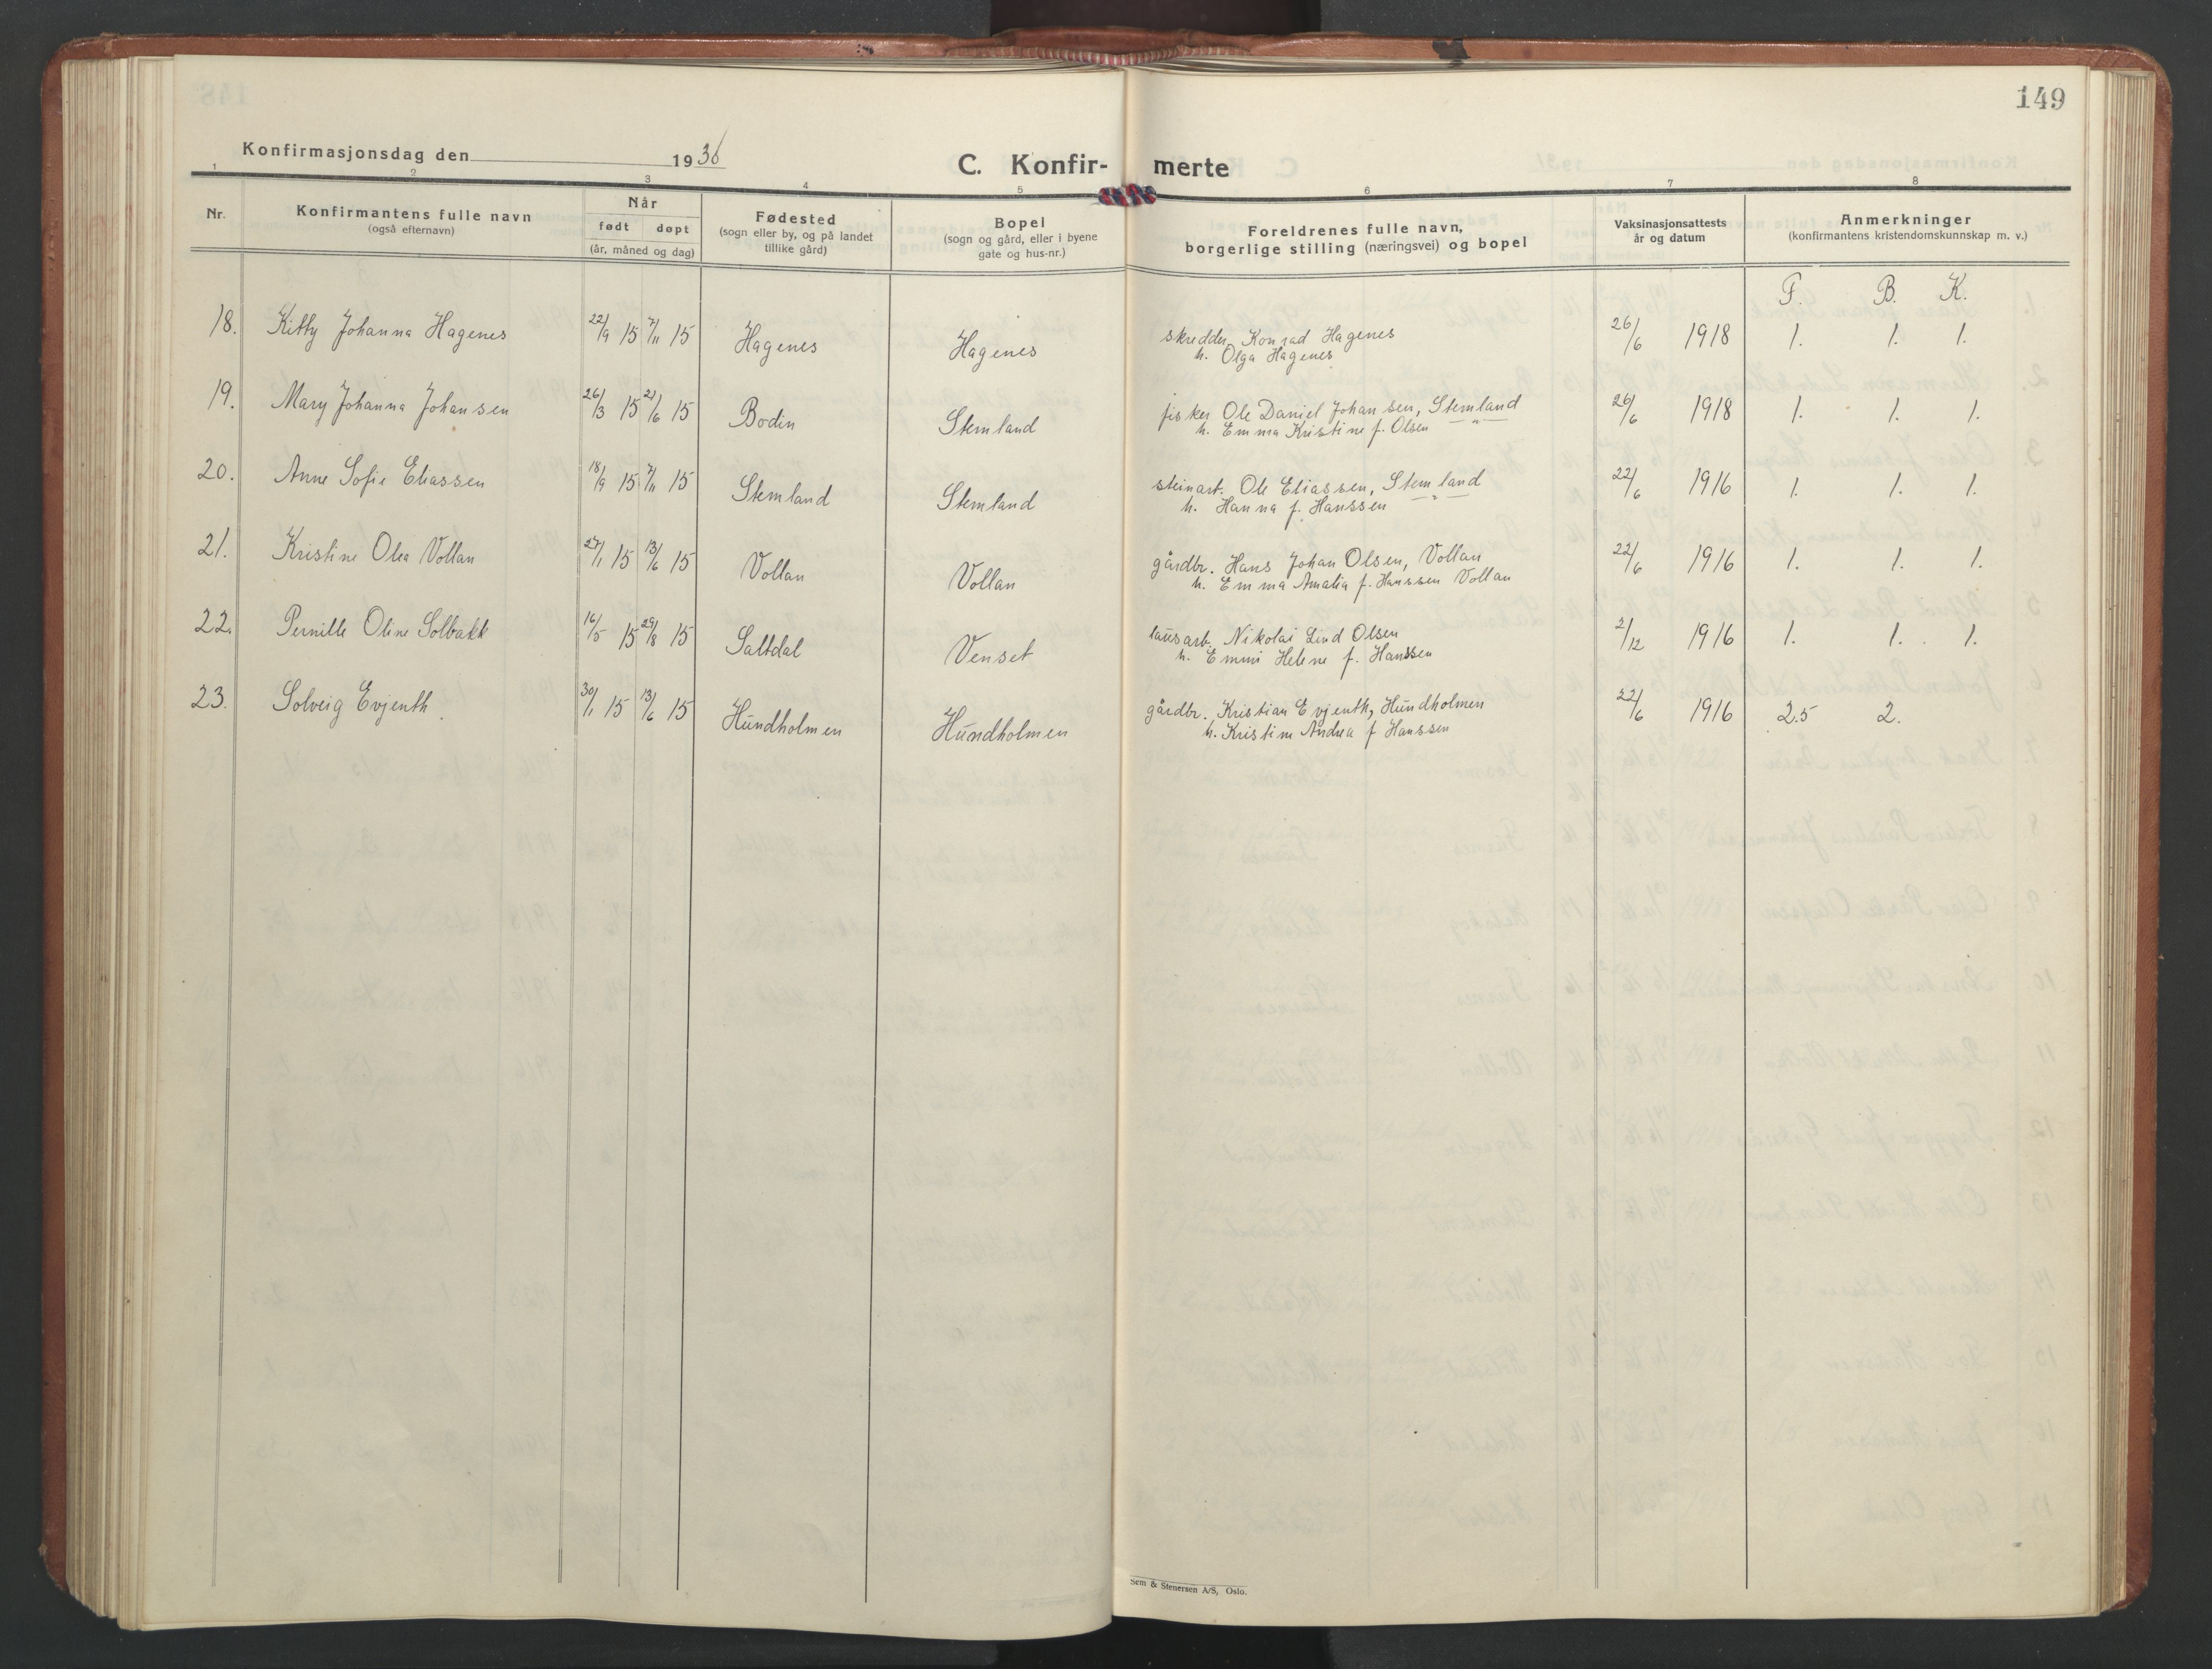 149
Konfirmasjonsdag den 1936
C. Konfir- merte
1 2 3 4 5 6 7 8
Nr.
Konfirmantens fulle navn
(også efternavn)
Når
født døpt
(år, måned og dag)
Fødested
(sogn eller by, og på landet
tillike gård)
Bopel
(sogn og gård, eller i byene
gate og hus-nr.)
Foreldrenes fulle navn,
borgerlige stilling (næringsvei) og bopel
Vaksinasjonsattests
år og datum
Anmerkninger
(konfirmantens kristendomskunnskap m. v.)
F. B. K.
18. Kitty Johanna Hagenes 22/9 15 7/11 15 Hagenes Hagenes skredder Konrad Hagenes 26/6 1918 1. 1. 1.
h. Olga Hagenes
19. Mary Johanna Johansen 26/3 15 21/6 15 Bodin Stemland fisker Ole Daniel Johansen, Stemland 26/6 1918 1. 1. 1.
h. Emma Kristine f. Olsen —"—
20. Anne Sofie Eliassen 18/9 15 7/11 15 Stemland Stemland steinarb. Ole Eliassen, Stemland 22/6 1916 1. 1. 1.
h. Hanna f. Hanssen —"—
21. Kristine Olea Vollan 27/1 15 13/6 15 Vollan Vollan gårdbr. Hans Johan Olsen, Vollan 22/6 1916 1. 1. 1.
h. Emma Amalia f. Hanssen Vollan
22. Pernille Oline Solbakk 16/5 15 29/8 15 Saltdal Venset lausarb. Nikolai Lind Olsen 2/12 1916 1. 1. 1.
h. Emmi Helene f. Hanssen
23. Solveig Evjenth 30/1 15 13/6 15 Hundholmen Hundholmen gårdbr. Kristian Evjenth, Hundholmen 22/6 1916 2.5 2.
h. Kristine Andrea f Hanssen
Sem & Stenersen A/S, Oslo.